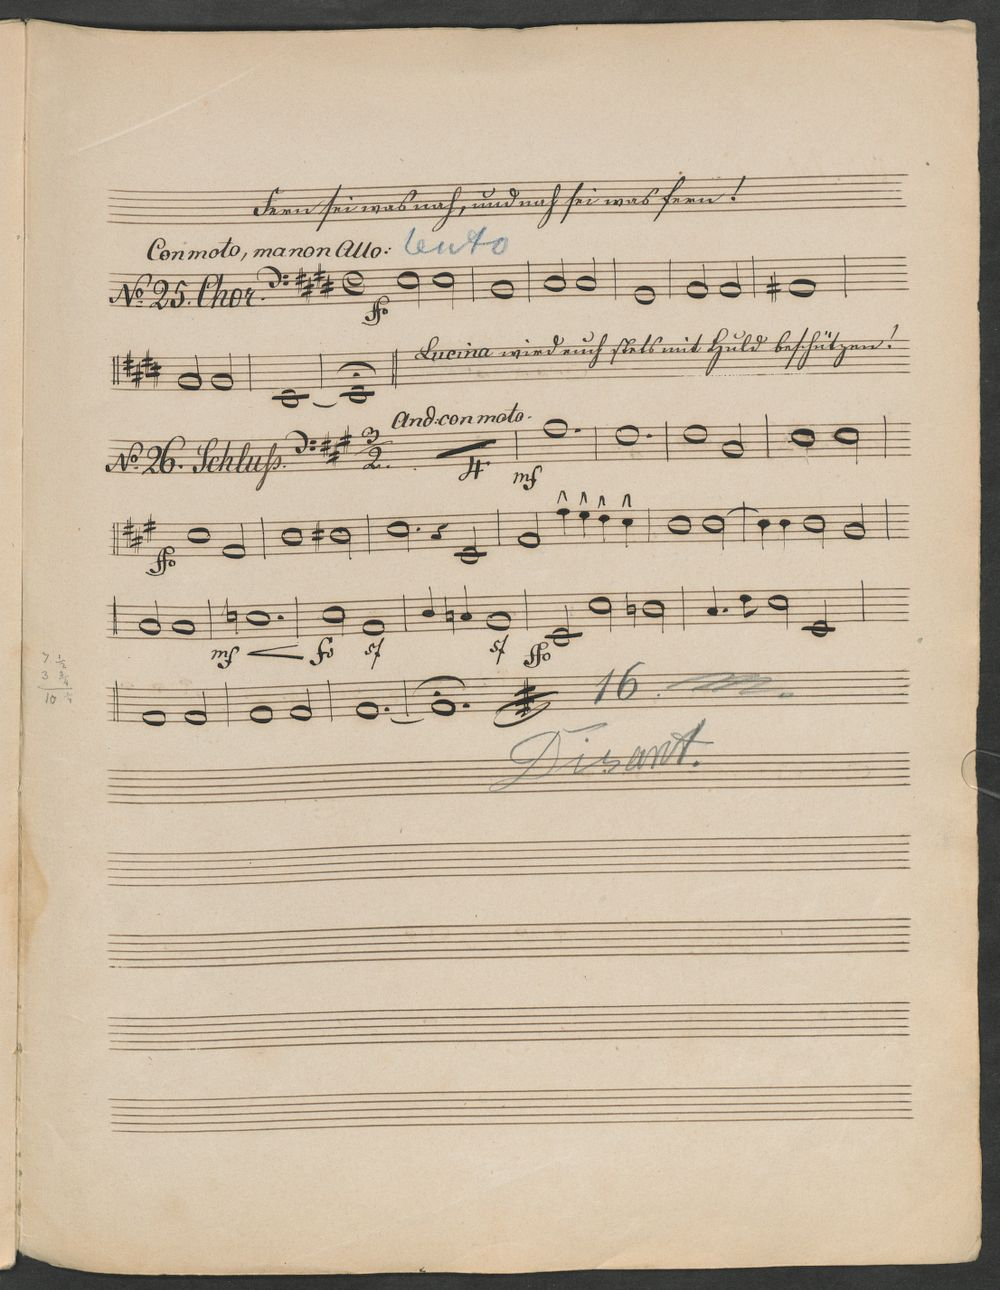 Fern sei was nah, und nah sei was fern!
Con moto, ma non Allo: lento
No. 25. Chor.
ffo
Lucina wird euch stets mit Huld beschützen!
And: con moto.
No. 26. Schluß.
3
2
4
mf
ffo
mf fo sf sf ffo
7 1/2
3 3/4
10
16
Disant.